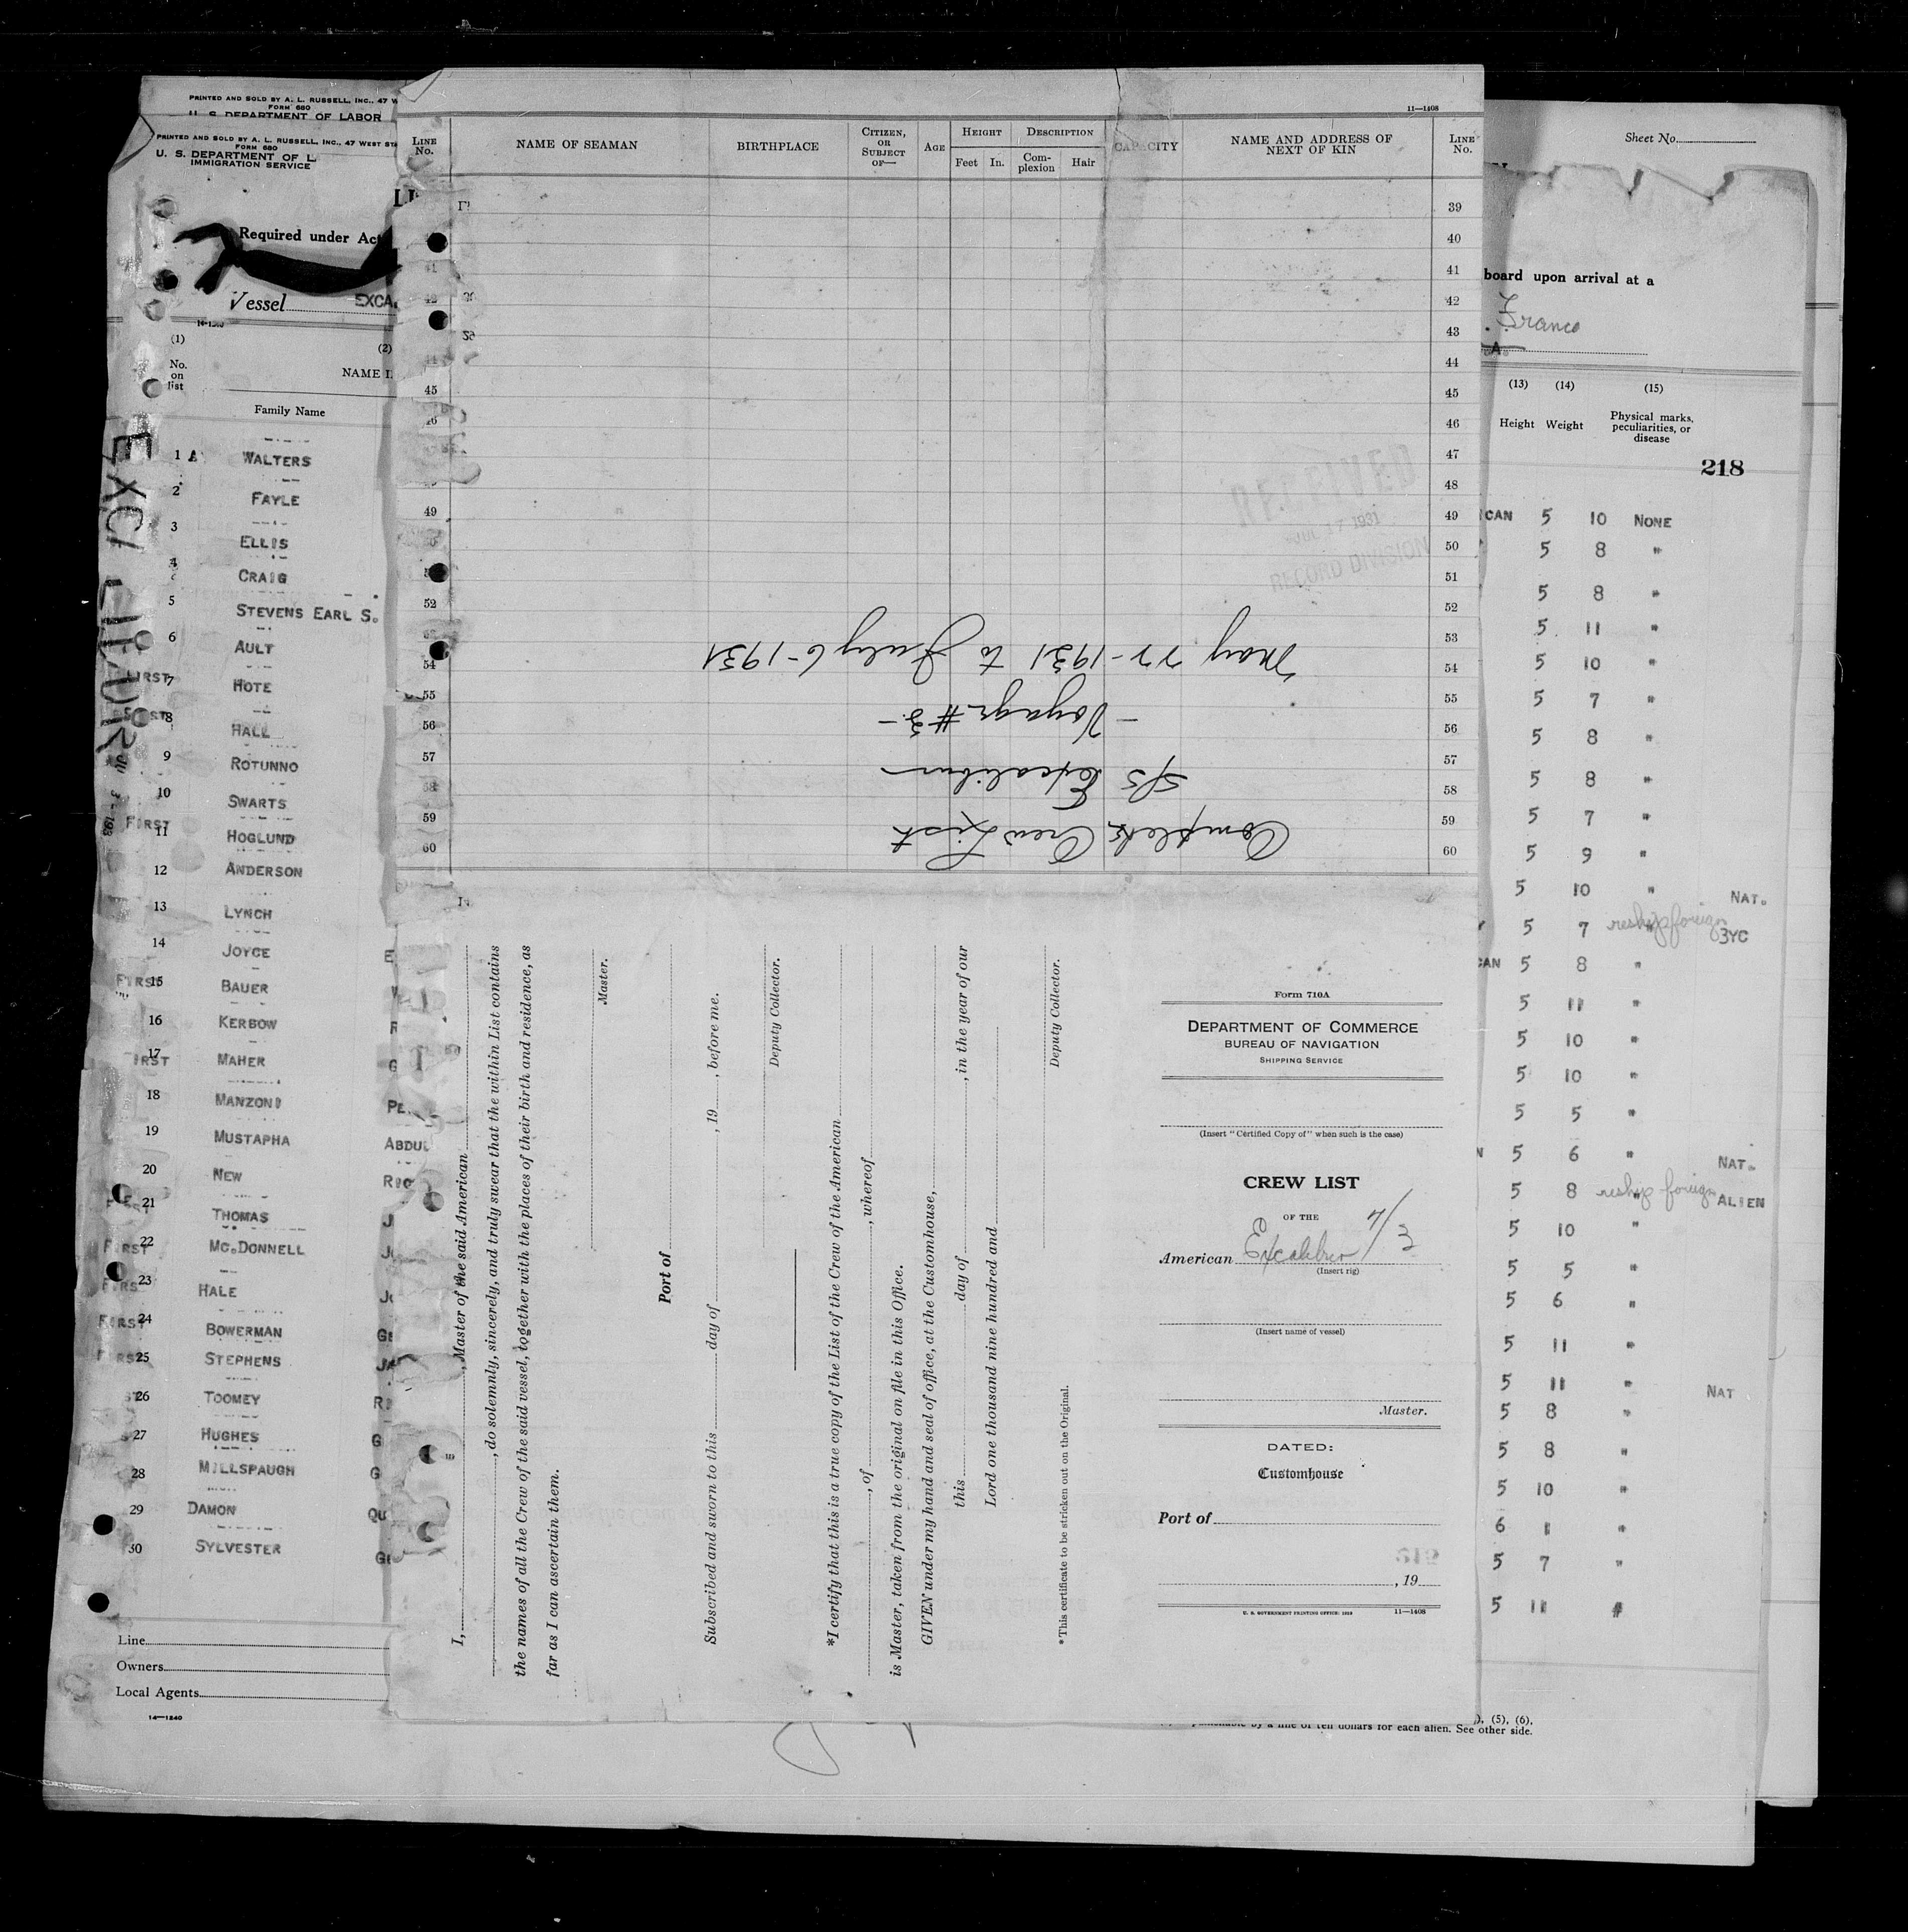 PRINTED AND SOLD BY A. L. RUSSELL, INC., 47 W
FORM 680
U. S. DEPARTMENT OF LABOR
PRINTED AND SOLD BY A. L. RUSSELL, INC., 47 WEST
FORM 680
U. S. DEPARTMENT OF L
IMMIGRATION SERVICE
Required under Act
Vessel EXCA
(1)
(2)
No. on list
NAME I
Family Name
1 A WALTERS
2 FAYLE
3 ELLIS
4 CRAIG
5 STEVENS EARL S.
6 AULT
7 HOTE
8 HALL
9 ROTUNNO
10 SWARTS
FIRST 11 HOGLUND
12 ANDERSON
13 LYNCH
14 JOYCE E
FIRST 15 BAUER
16 KERBOW
17 MAHER G
18 MANZONI PE
19 MUSTAPHA ABDUL
20 NEW
21 THOMAS J
22 MC.DONNELL
23 HALE
FIRST 24 BOWERMAN
25 STEPHENS JA
26 TOOMEY
27 HUGHES G
28 MILLSPAUGH G
29 DAMON QU
30 SYLVESTER
Line
Owners
Local Agents
14—1240
11—1408
LINE No.
NAME OF SEAMAN
BIRTHPLACE
CITIZEN, OR SUBJECT OF—
AGE
HEIGHT
Feet In.
DESCRIPTION
Complexion Hair
CAPACITY
NAME AND ADDRESS OF NEXT OF KIN
LINE No.
39
40
41
42
43
44
45
46
47
48
49
50
51
52
53
54
55
56
57
58
59
60
RECEIVED
JUL 17 1931
RECORD DIVISION
Complete Crew List
S/S Excalibur
— Voyage #3 —
May 22-1931 to July 6-1931
I, , Master of the said American
, do solemnly, sincerely, and truly swear that the within List contains
the names of all the Crew of the said vessel, together with the places of their birth and residence, as
far as I can ascertain them.
Master.
Port of
Subscribed and sworn to this day of , 19 , before me.
Deputy Collector.
*I certify that this is a true copy of the List of the Crew of the American
, of , whereof
is Master, taken from the original on file in this Office.
GIVEN under my hand and seal of office, at the Customhouse,
this day of , in the year of our
Lord one thousand nine hundred and
Deputy Collector.
*This certificate to be stricken out on the Original.
Form 710A
DEPARTMENT OF COMMERCE
BUREAU OF NAVIGATION
SHIPPING SERVICE
(Insert "Certified Copy of" when such is the case)
CREW LIST
OF THE
American Excalibur
(Insert rig)
(Insert name of vessel)
Master.
DATED:
Customhouse
Port of
, 19
11—1408
Sheet No.
board upon arrival at a
(13) (14) (15)
Height Weight Physical marks, peculiarities, or disease
218
CAN 5 10 NONE
5 8 "
5 8 "
5 11 "
5 10 "
5 7 "
5 8 "
5 8 "
5 7 "
5 9 "
5 10 " NAT.
5 7 " reship foreign 3YC
CAN 5 8 "
5 11 "
5 10 "
5 10 "
5 5 "
N 5 6 " NAT.
5 8 " reship foreign ALIEN
5 10 "
5 5 "
5 6 "
5 11 "
5 11 " NAT
5 8 "
5 8 "
5 10 "
6 "
5 7 "
5 11 "
), (5), (6),
for each alien. See other side.
EXCALIBUR